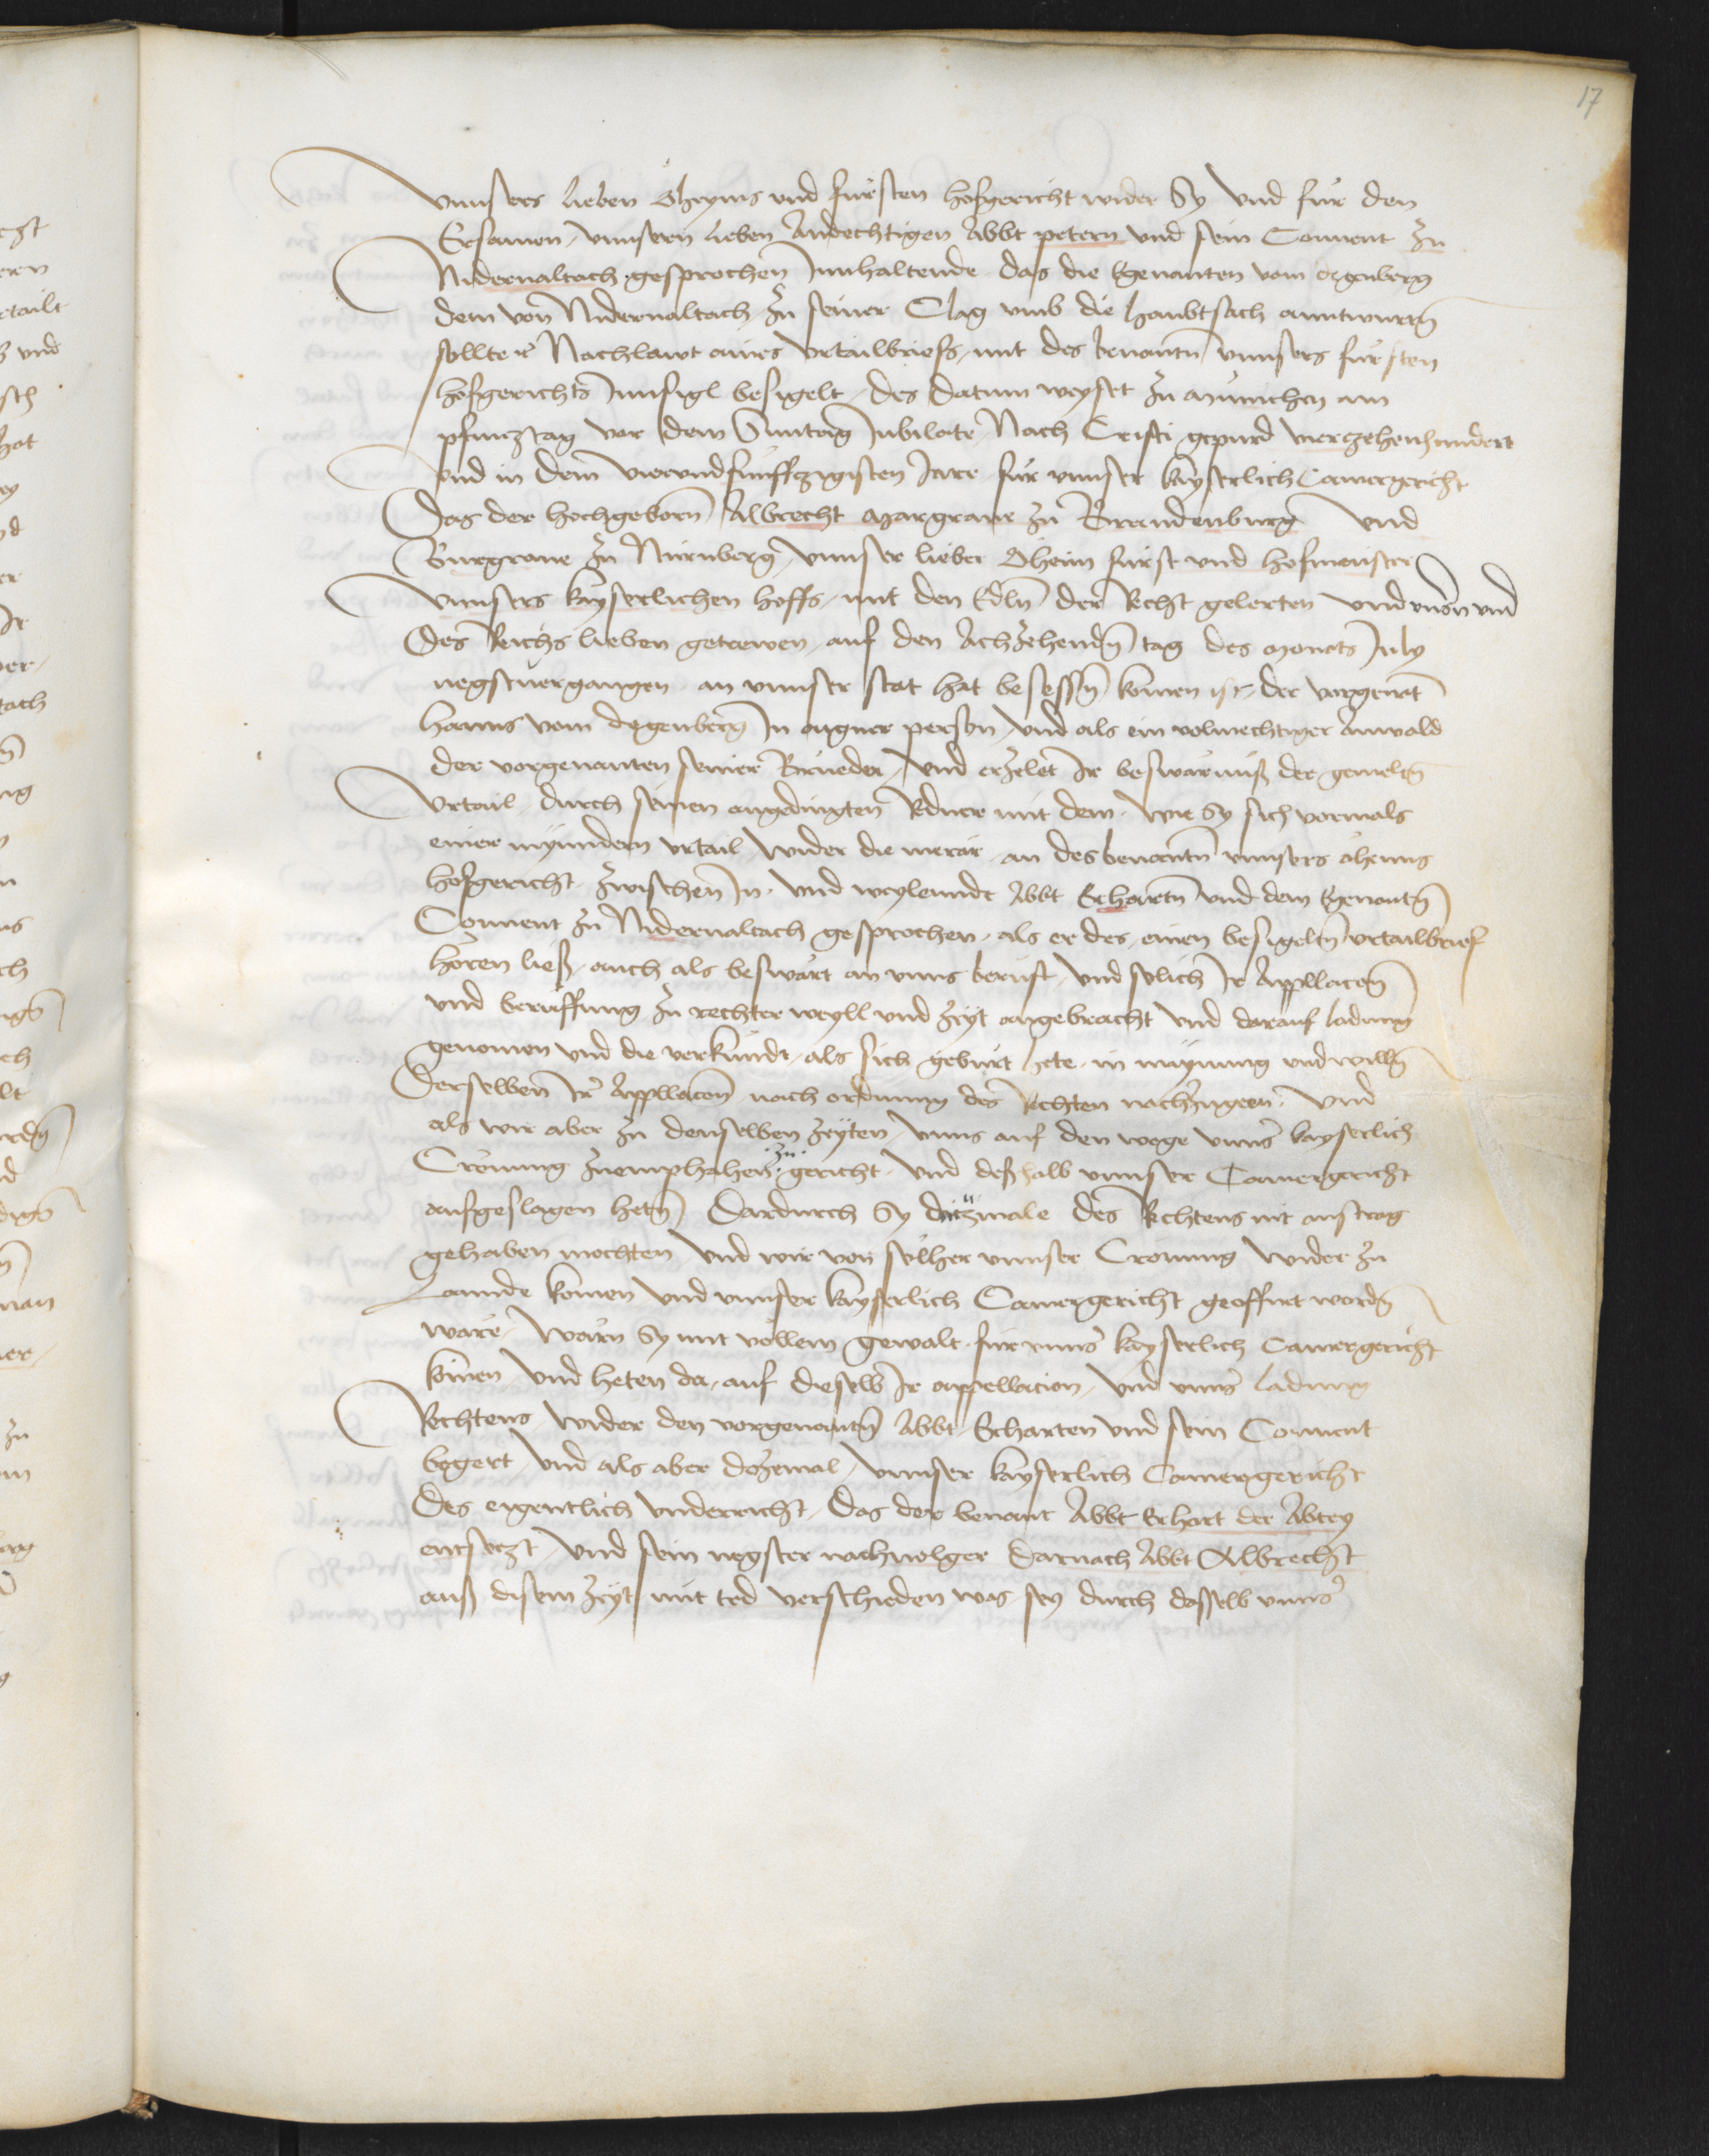 17
vnnsers lieben Oheyms vnd fursten hofgericht wider Sy vnd für den
Ersamen, vnnsern lieben Andechtigen Abbt petern vnd sein Conuent zu
Nidernaltach gesprochen Innhaltende das die Egenanten vom degenberg
dem von Nidernaltach zu seiner Clag vmb die haubtsach anntwurtn̄
sollten Nachlawt aines Vrtailbriefs, mit des benantn̄ vnnsers fursten
hofgerichts Innsigl besigelt, des datum weyset zu Münichen am
pfincztag vor dem Sunntag Jubilate Nach Cristi gepurd vierczehenhundert
vnd in dem vierundfunffczigisten Jare für vnnser kayserlich Camergericht
Das der hochgeborn̄ Albrecht Margraue zu Branndenburg vnd
Burgraue zu Nürnberg, vnnser lieber Oheim fürst vnd hofmeister
Vnnsers kayserlichen hoffs, mit den Edln̄ der Recht gelerten vnd vnsn̄ vnd
des Reichs lieben getrewen, auf den Achzehendn̄ tag des Monats July
negstuergangen an vnnser stat hat besessn̄ komen ist, der vorgenāt
Hanns vom degenberg In aigner person vnd als ein volmechtiger Anwald
der vorgenanten seiner Brüeder, vnd erzelet Ir beswärnüß der gemeltn̄
Vrtail durch seinen angedingten Redner mit dem, wie sy sich vormals
einer mynndern vrtail wider die merar an des benantn̄ vnnsers Oheims
hofgericht zwischen In vnd weylenndt Abbt Erhartn̄ vnd dem Egenantn̄
Conuent zu Nidernaltach gesprochen, als er des einen besigeltn̄ vrtailbrief
hören ließ, auch als beswärt an vnns berüft vnd solich Ir Appllacōn̄
vnd berüffung zu rechter weyll vnd zeyt angebracht vnd darauf ladung
genomen vnd die verkündt, als sich gebürt hete, in maynung vnd willn̄
Derselben Ir Appllacōn̄ nach ordnung des Rechten nachzugeen. Vnd
als wir aber zu denselben zeyten, vnns auf den wege vnns' kayserlich
Crönung zuemphahen ·zu· gericht, vnd deßhalb vnnser Camergericht
aufgeslagen hetn̄ Dardurch Sy dazmale des Rechtens nit austrag
gehaben mochten vnd wir von sölher vnnser Crönung wider zu
Lannde komen vnd vnnser kayserlich Camergericht geoffnt wordn̄
wäre, Wärn Sy mit vollem gewalt für vnns' kayserlich Camergericht
komen vnd heten da, auf dieselb Ir appellacion, vnd vnns' ladung
Rechtens wider den vorgenantn̄ Abbt Erharten vnd sein Conuent
begert, Vnd als aber dozemal, vnnser kayserlich Camergericht
des eigentlich vnderricht, das der benant Abbt Erhart der Abtey
entseczt, vnd sein negster nachuolger darnach Abbt Albrecht
auß disem zeyt mit tod verschieden was sey durch dasselb vnns'